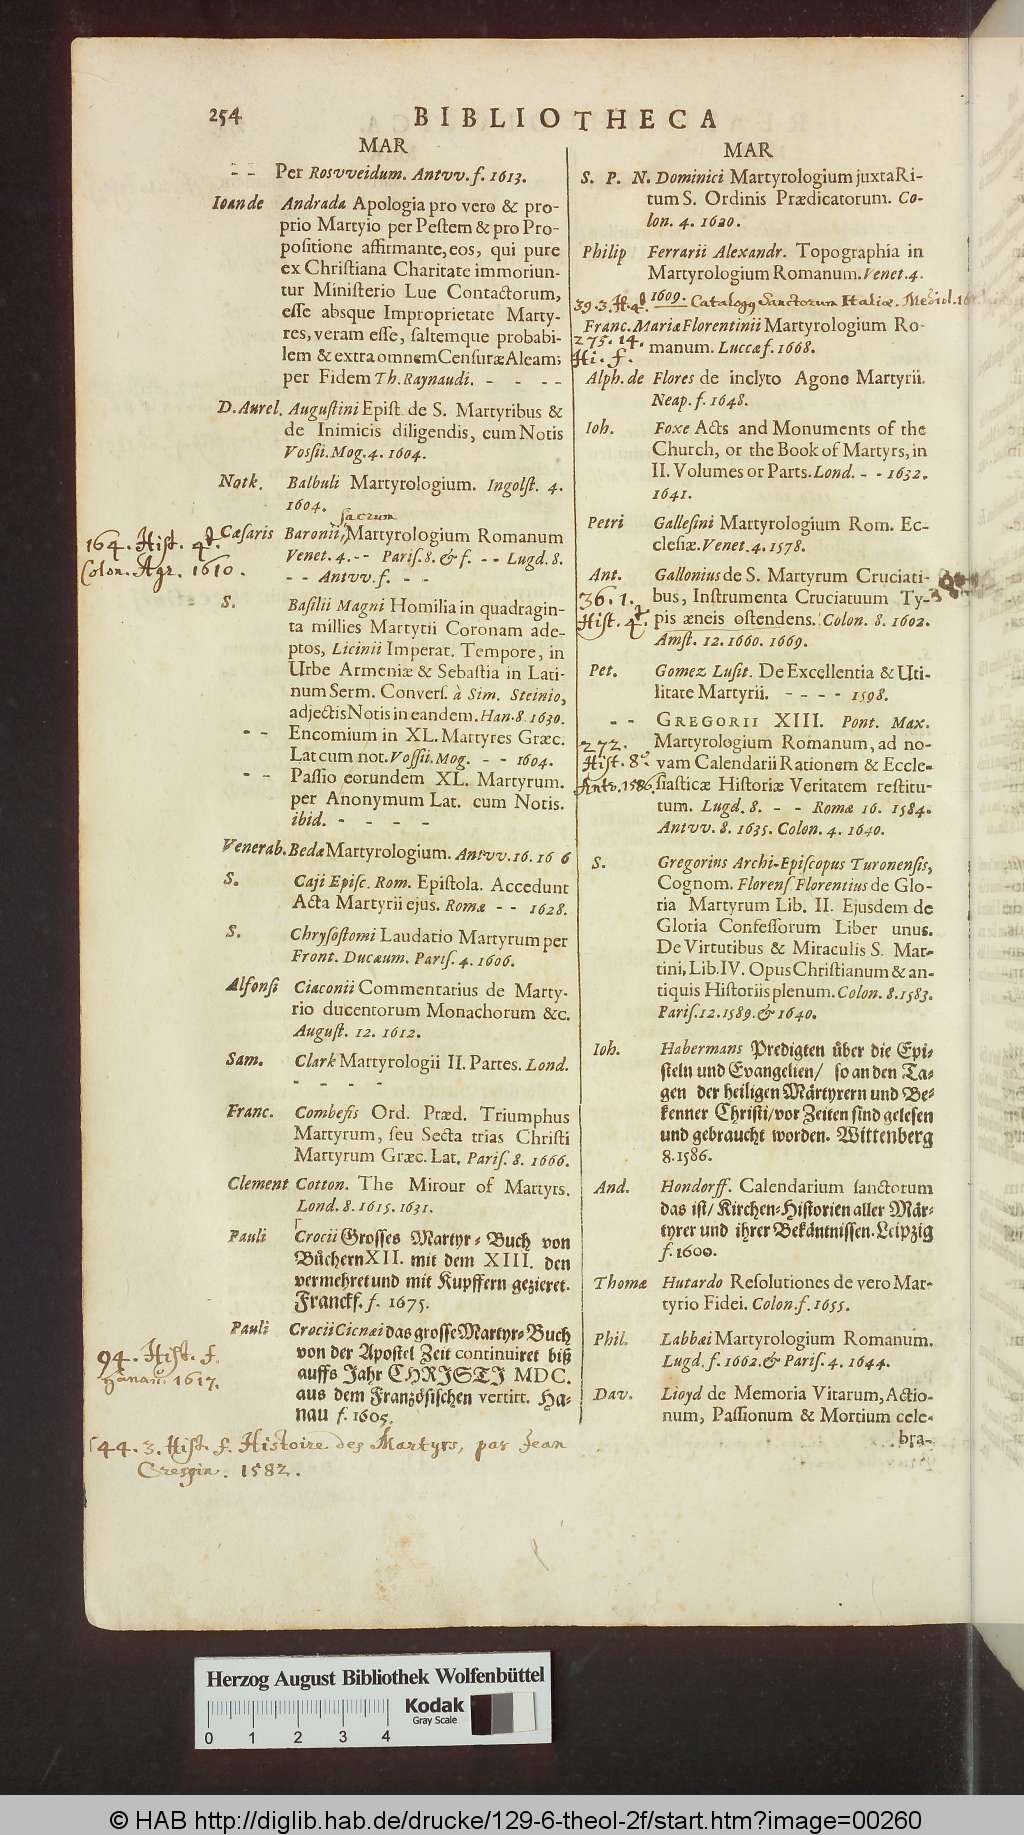 254 BIBLIOTHECA
MAR
- - Per Rosvveidum. Antvv. f. 1613.
Ioan de Andrada Apologia pro vero & pro-
prio Martyio per Pestem & pro Pro-
positione affirmante, eos, qui pure
ex Christiana Charitate immoriun-
tur Ministerio Lue Contactorum,
esse absque Improprietate Marty-
res, veram esse, saltemque probabi-
lem & extra omnem Censuræ Aleam;
per Fidem Th. Raynaudi. - - - -
D. Aurel. Augustini Epist. de S. Martyribus &
de Inimicis diligendis, cum Notis
Vossii. Mog. 4. 1604.
Notk. Balbuli Martyrologium. Ingolst. 4.
1604.
sacrum
164. Hist. 4t. Cæsaris Baronii, Martyrologium Romanum
Venet. 4. - - Paris. 8. & f. - - Lugd. 8.
Colon. Agr. 1610. - - Antvv. f. - -
S. Basilii Magni Homilia in quadragin-
ta millies Martyrii Coronam ade-
ptos, Licinii Imperat. Tempore, in
Urbe Armeniæ & Sebastia in Lati-
num Serm. Convers. à Sim. Steinio,
adjectis Notis in eandem. Han. 8. 1630.
- - Encomium in XL. Martyres Græc.
Lat cum not. Vossii. Mog. - - 1604.
- - Passio eorundem XL. Martyrum.
per Anonymum Lat. cum Notis.
ibid. - - - -
Venerab. Bedæ Martyrologium. Antvv. 16. 16 6
S. Caji Episc. Rom. Epistola. Accedunt
Acta Martyrii ejus. Romæ - - 1628.
S. Chrysostomi Laudatio Martyrum per
Front. Ducæum. Paris. 4. 1606.
Alfonsi Ciaconii Commentarius de Marty-
rio ducentorum Monachorum &c.
August. 12. 1612.
Sam. Clark Martyrologii II. Partes. Lond.
- - - -
Franc. Combefis Ord. Præd. Triumphus
Martyrum, seu Secta trias Christi
Martyrum Græc. Lat. Paris. 8. 1666.
Clement Cotton. The Mirour of Martyrs.
Lond. 8. 1615. 1631.
Pauli Crocii Grosses Martyr-Buch von
Büchern XII. mit dem XIII. den
vermehret und mit Kupffern gezieret.
Franckf. f. 1675.
Pauli Crocii Cicnæi das grosse Martyr-Buch
von der Apostel Zeit continuiret biß
94. Hist. f. auffs Jahr CHRISTI MDC.
Hanau 1617. aus dem Französischen vertirt. Ha-
nau f. 1605.
144. 3. Hist. f. Histoire des Martyrs, par Jean
Crespin. 1582.
MAR
S. P. N. Dominici Martyrologium juxta Ri-
tum S. Ordinis Prædicatorum. Co-
lon. 4. 1620.
Philip Ferrarii Alexandr. Topographia in
Martyrologium Romanum. Venet. 4.
39. 3. H. 4t. 1609. Catalogus Sanctorum Italiæ. Mediol.
Franc. Mariæ Florentinii Martyrologium Ro-
275. 14. manum. Luccæ f. 1668.
Hi. f.
Alph. de Flores de inclyto Agone Martyrii.
Neap. f. 1648.
Ioh. Foxe Acts and Monuments of the
Church, or the Book of Martyrs, in
II. Volumes or Parts. Lond. - - 1632.
1641.
Petri Gallesini Martyrologium Rom. Ec-
clesiæ. Venet. 4. 1578.
Ant. Gallonius de S. Martyrum Cruciati-
36. 1. bus, Instrumenta Cruciatuum Ty-
Hist. 4t. pis æneis ostendens. Colon. 8. 1602.
Amst. 12. 1660. 1669.
Pet. Gomez Lusit. De Excellentia & Uti-
litate Martyrii. - - - - 1598.
- - GREGORII XIII. Pont. Max.
272. Martyrologium Romanum, ad no-
Hist. 8o vam Calendarii Rationem & Eccle-
Antv. 1586. siasticæ Historiæ Veritatem restitu-
tum. Lugd. 8. - - Romæ 16. 1584.
Antvv. 8. 1635. Colon. 4. 1640.
S. Gregorius Archi-Episcopus Turonensis,
Cognom. Florens Florentius de Glo-
ria Martyrum Lib. II. Ejusdem de
Gloria Confessorum Liber unus.
De Virtutibus & Miraculis S. Mar-
tini, Lib. IV. Opus Christianum & an-
tiquis Historiis plenum. Colon. 8. 1583.
Paris. 12. 1589. & 1640.
Ioh. Habermans Predigten über die Epi-
steln und Evangelien/ so an den Ta-
gen der heiligen Märtyrern und Be-
kenner Christi/ vor Zeiten sind gelesen
und gebraucht worden. Wittenberg
8. 1586.
And. Hondorff. Calendarium sanctorum
das ist/ Kirchen-Historien aller Mär-
tyrer und ihrer Bekäntnissen. Leipzig
f. 1600.
Thomæ Hutardo Resolutiones de vero Mar-
tyrio Fidei. Colon. f. 1655.
Phil. Labbæi Martyrologium Romanum.
Lugd. f. 1662. & Paris. 4. 1644.
Dav. Lioyd de Memoria Vitarum, Actio-
num, Passionum & Mortium cele-
bra-
Herzog August Bibliothek Wolfenbüttel
Kodak
Gray Scale
0 1 2 3 4
© HAB http://diglib.hab.de/drucke/129-6-theol-2f/start.htm?image=00260